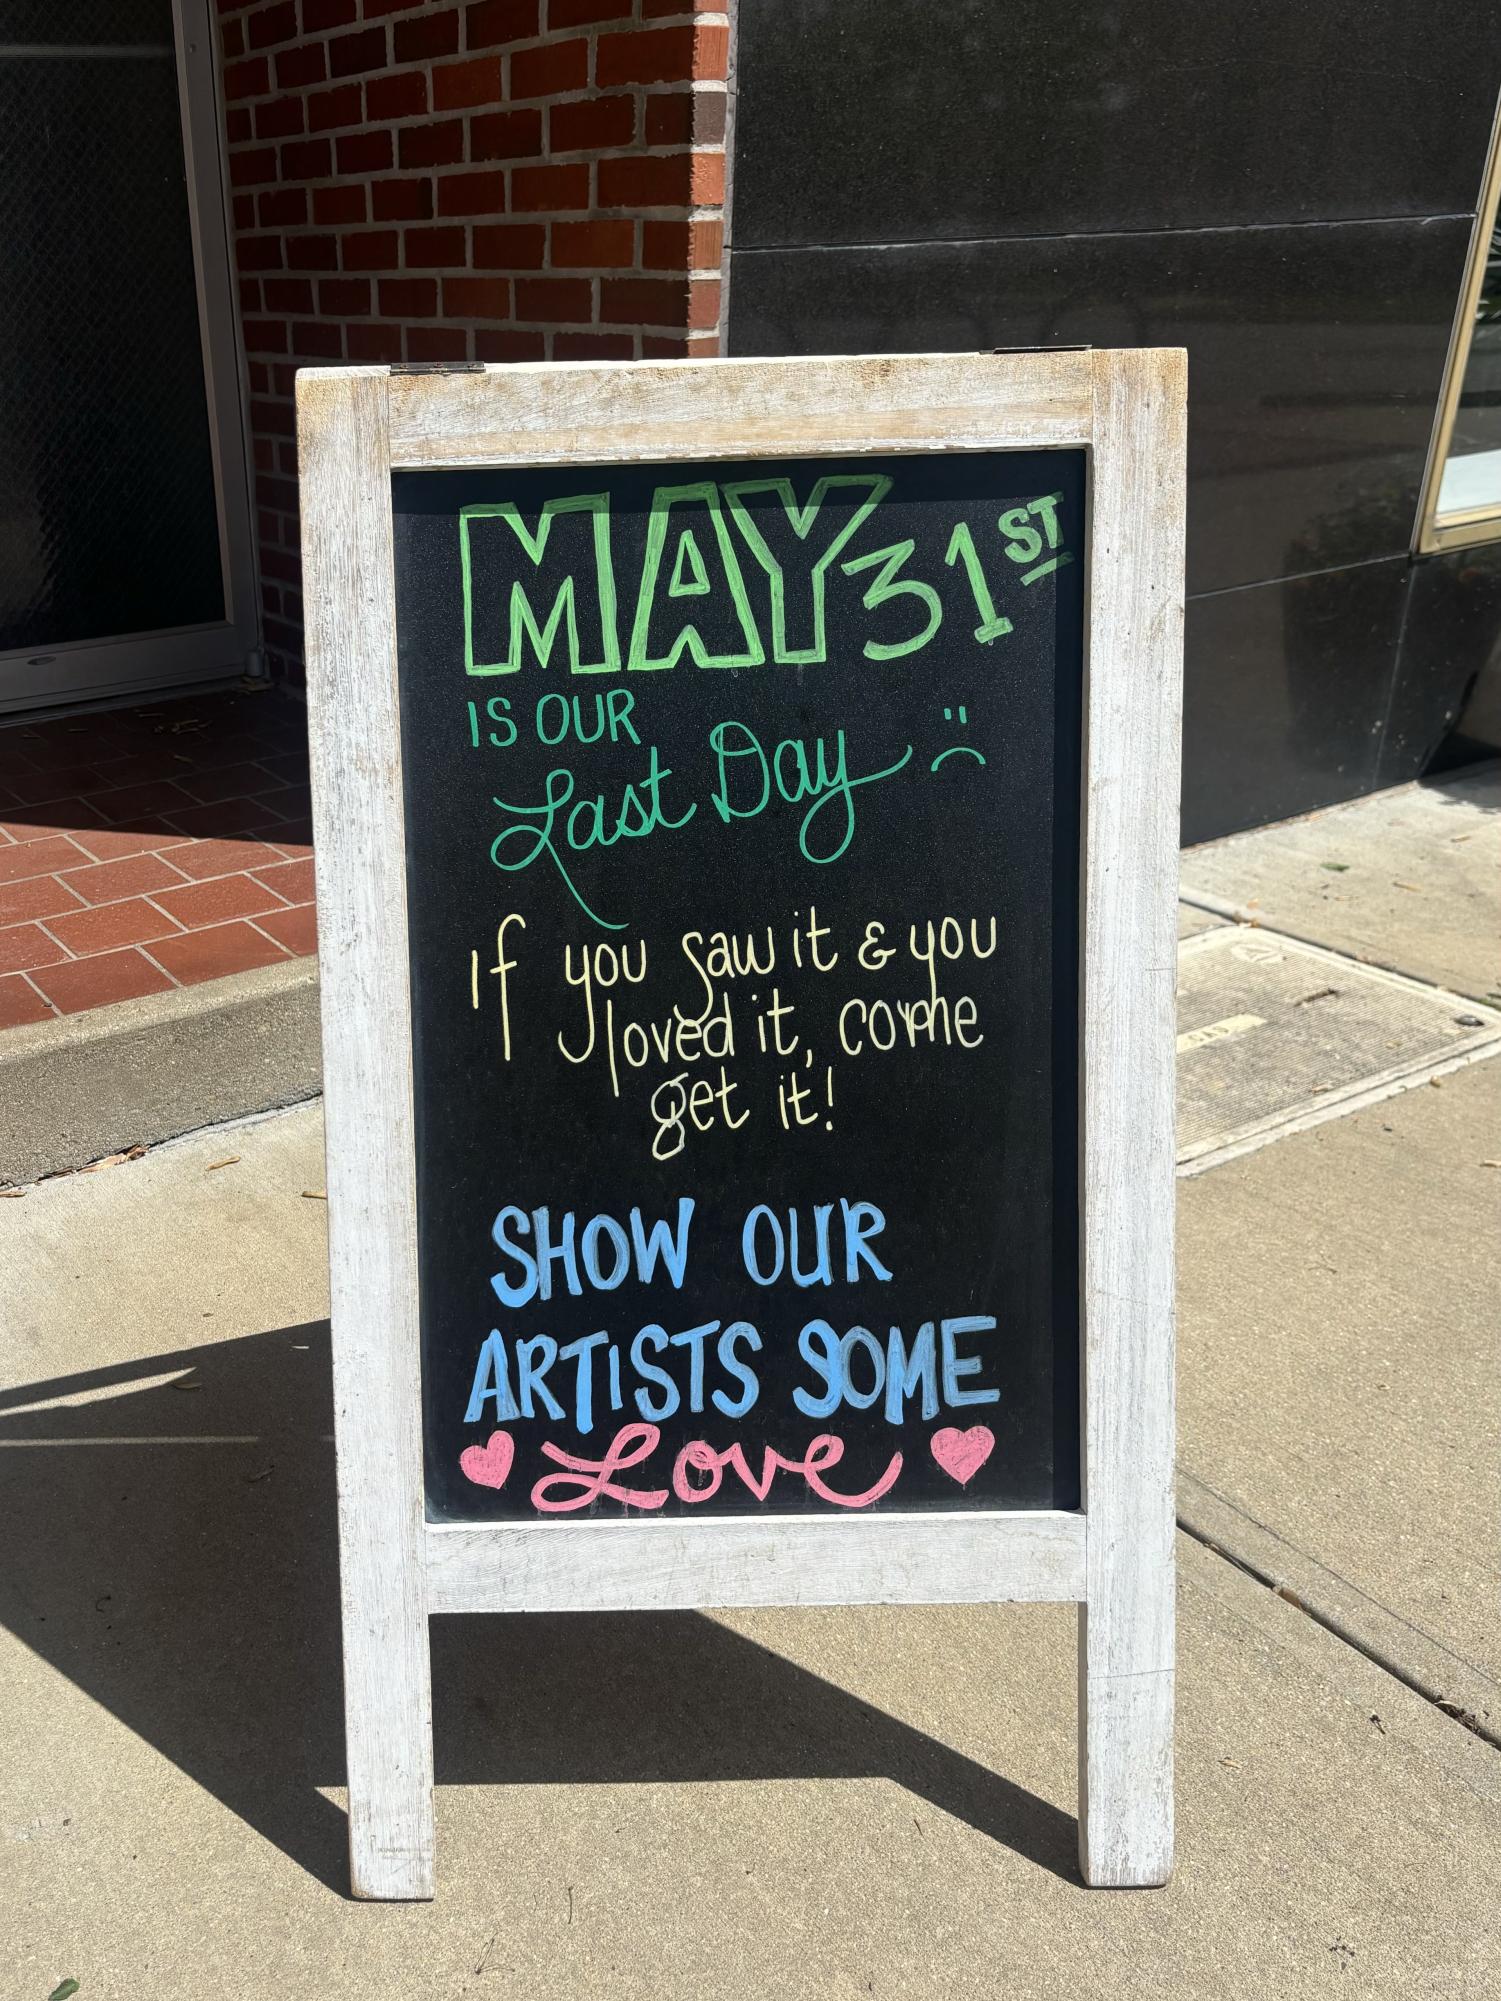 MAY 31ST
IS OUR
Last Day :(
If you saw it & you
loved it, come
get it!
SHOW OUR
ARTISTS SOME
Love